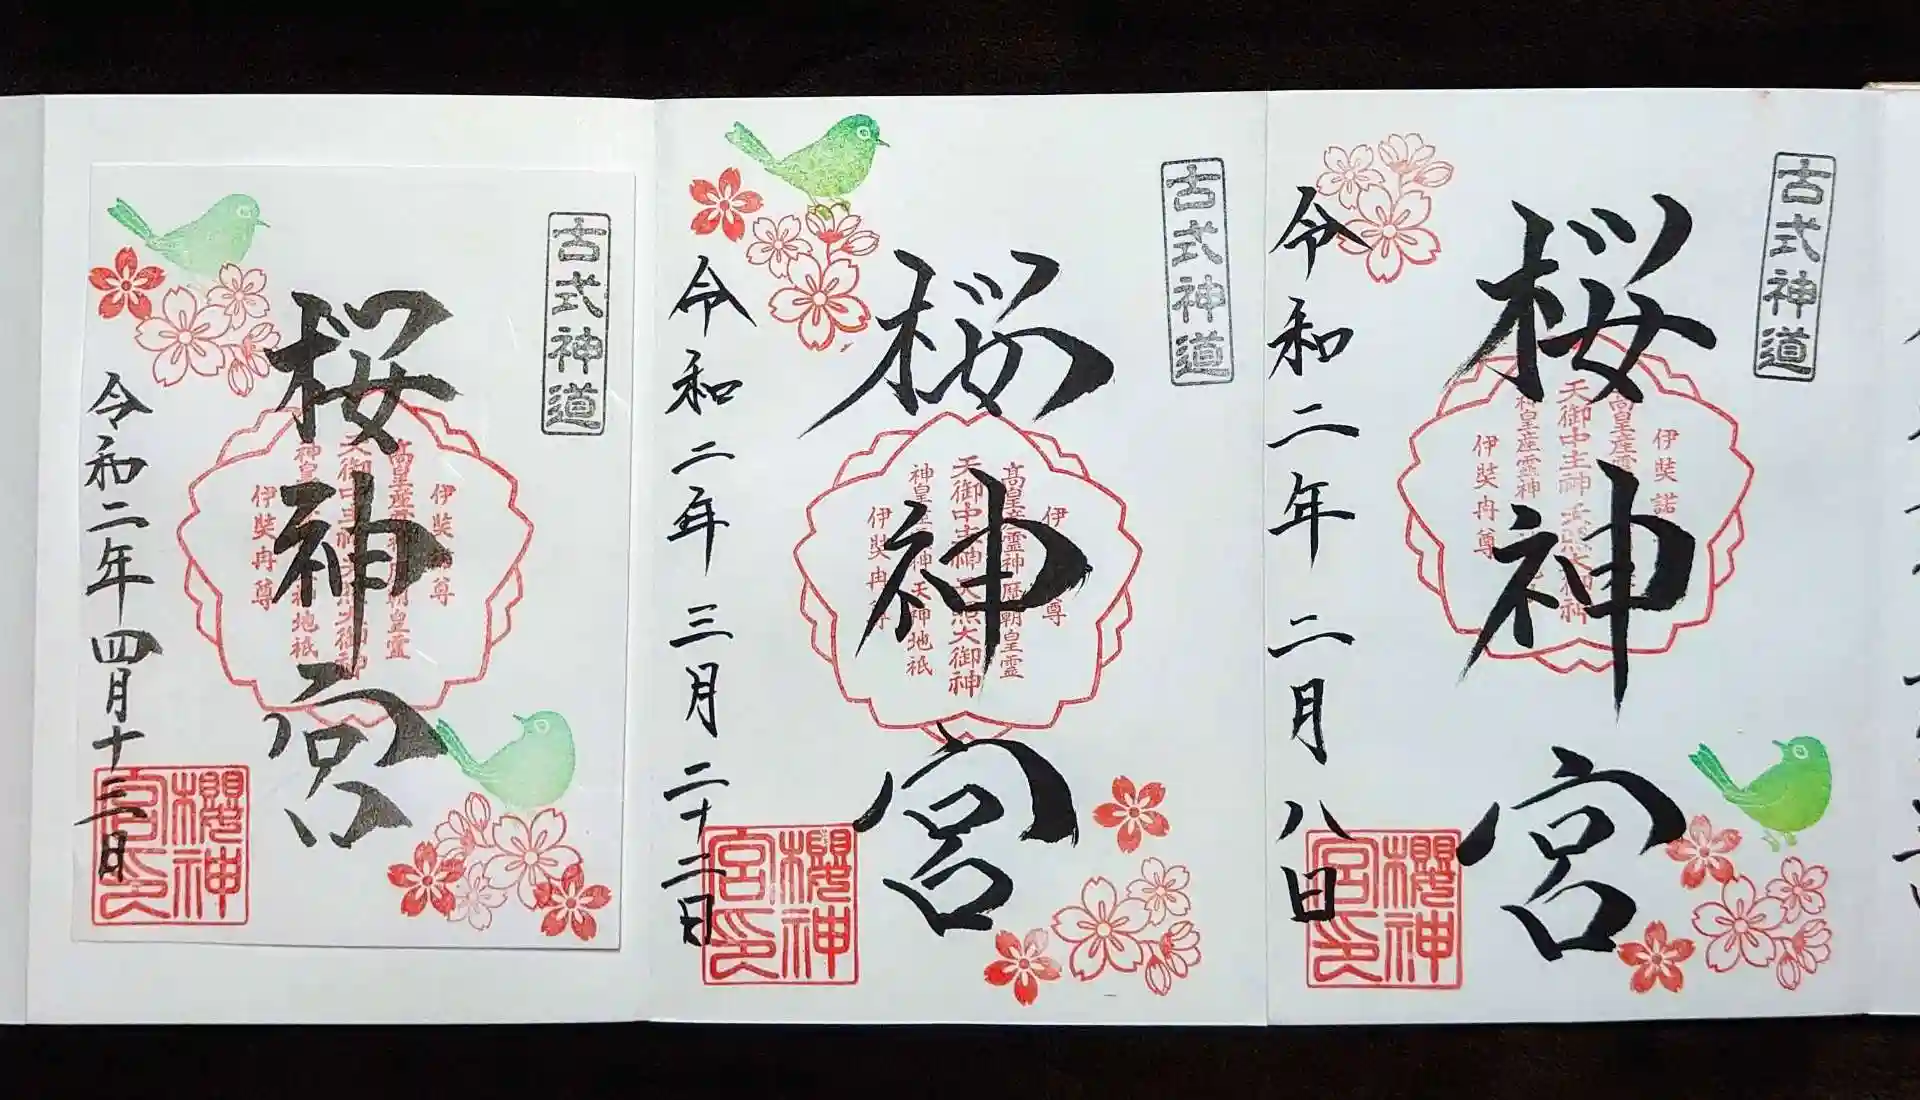 古式神道
桜神宮
伊奘諾尊
高皇産霊神歴朝皇霊
天御中主神天照大御神
神皇産霊神天神地祇
伊奘冉尊
令和二年二月八日
櫻神
宮印
古式神道
桜神宮
伊奘諾尊
高皇産霊神歴朝皇霊
天御中主神天照大御神
神皇産霊神天神地祇
伊奘冉尊
令和二年三月二十二日
櫻神
宮印
古式神道
桜神宮
伊奘諾尊
高皇産霊神歴朝皇霊
天御中主神天照大御神
神皇産霊神天神地祇
伊奘冉尊
令和二年四月十三日
櫻神
宮印